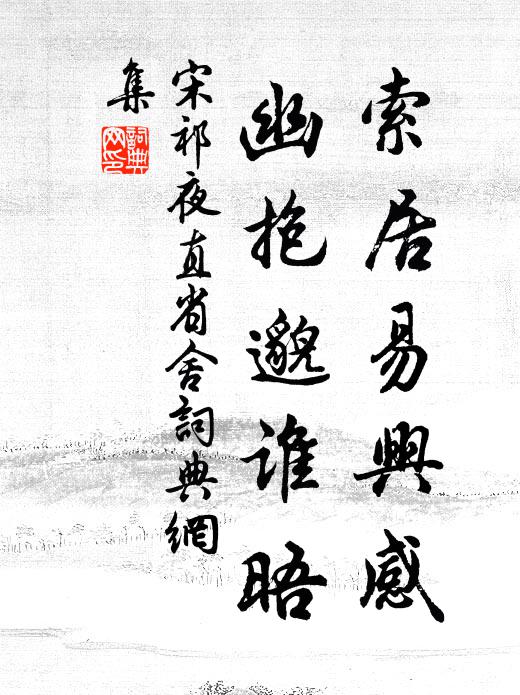 索居易興感
幽抱邈誰晤
宋祁夜直省舍詞典網
集
詞典網印